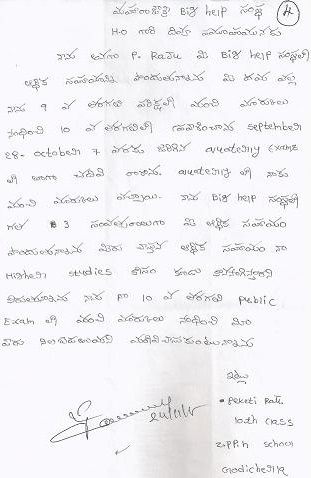 మహారాజశ్రీ Big help సంస్థ 4
H.O గారి దివ్య సముఖమునకు
నాను అనగా P. Raju మీ Big help సంస్థలో
ఆర్థిక సహాయమును పొందుతున్నాను మీ దయ వల్ల
నాను 9 వ తరగతి పరీక్షలో మంచి మార్కులు
సాధించి 10 వ తరగతిలో September
28- October 7 వరకు జరిగిన quaterly Exams
లో బాగా చదివి రాశాను. quaterly లో నాకు
మంచి మార్కులు వచ్చాయి. నాను Big help సంస్థలో
గత 3 సంవత్సరాలుగా మీ ఆర్థిక సహాయం
పొందుతున్నాను మీరు ఆర్థిక సహాయం నా
Higher studies కోసం కూడా
కోరుతున్నాను నాను నా 10 వ తరగతి Public
Exam లో మంచి మార్కులు సాధించి మీ
పేరు
ఇట్లు
• peketi Raju
10th class
Z.P.P.H School
Godicherla